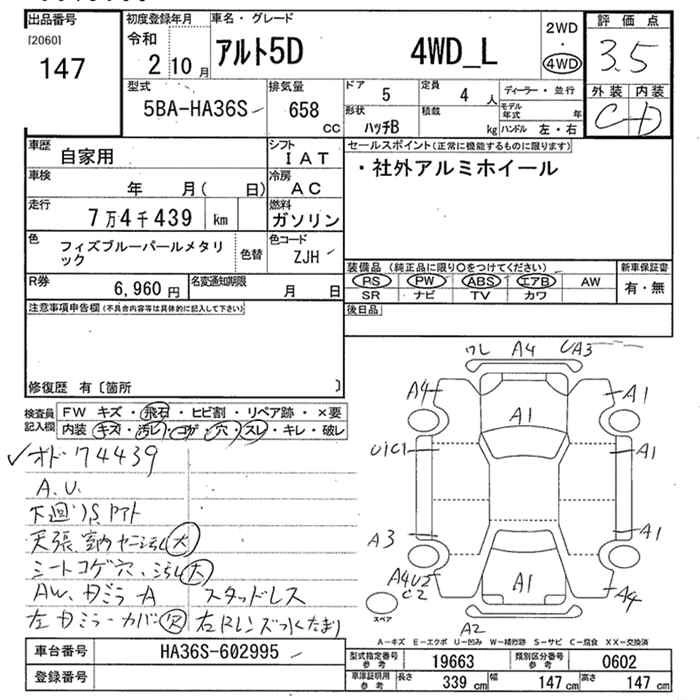 出品番号
[2060]
147
初度登録年月
令和
2 10月
車名・グレード
アルト5D 4WD_L
2WD
・
4WD
評価点
3.5
外装 内装
C D
型式
5BA-HA36S
排気量
658
CC
ドア
5
定員
4 人
ディーラー・並行
形状
ハッチB
積載
kg
モデル年式 年
ハンドル 左・右
車歴
自家用
シフト
IAT
セールスポイント(正常に機能するものに限ります)
・社外アルミホイール
車検
年 月( 日)
冷房
AC
走行
7万4千439 km
燃料
ガソリン
色
フィズブルーパールメタリ
ック
色替
色コード
ZJH
装備品 (純正品に限り○をつけてください)
PS PW ABS エアB AW
SR ナビ TV カワ
新車保証書
有・無
R券
6,960円
名変通知期限
月 日
後日品
注意事項申告欄(不具合内容等は具体的に記入して下さい)
修復歴 有〔箇所 〕
検査員
記入欄
FW キズ・飛石・ヒビ割・リペア跡・×要
内装 キズ・汚レ・コゲ・穴・スレ・キレ・破レ
オド74439
A.U.
下廻リS
天張、室内ヤニ 大
シートコゲ穴、 大
AW、 A スタッドレス
左 ミラーカバー欠 右Rレンズ水たまり
ワレ A4 UA3
A4 A1 A1
U1C1 A1
A3 A1
A4U2
C2 A1 A4
スペア
A2
A-キズ E-エクボ U-凹み W-補修跡 S-サビ C-腐食 XX-交換済
車台番号
HA36S-602995
登録番号
型式指定番号
参考
19663
類別区分番号
参考
0602
車庫証明用
参考
長さ 339 cm
幅 147 cm
高さ 147 cm